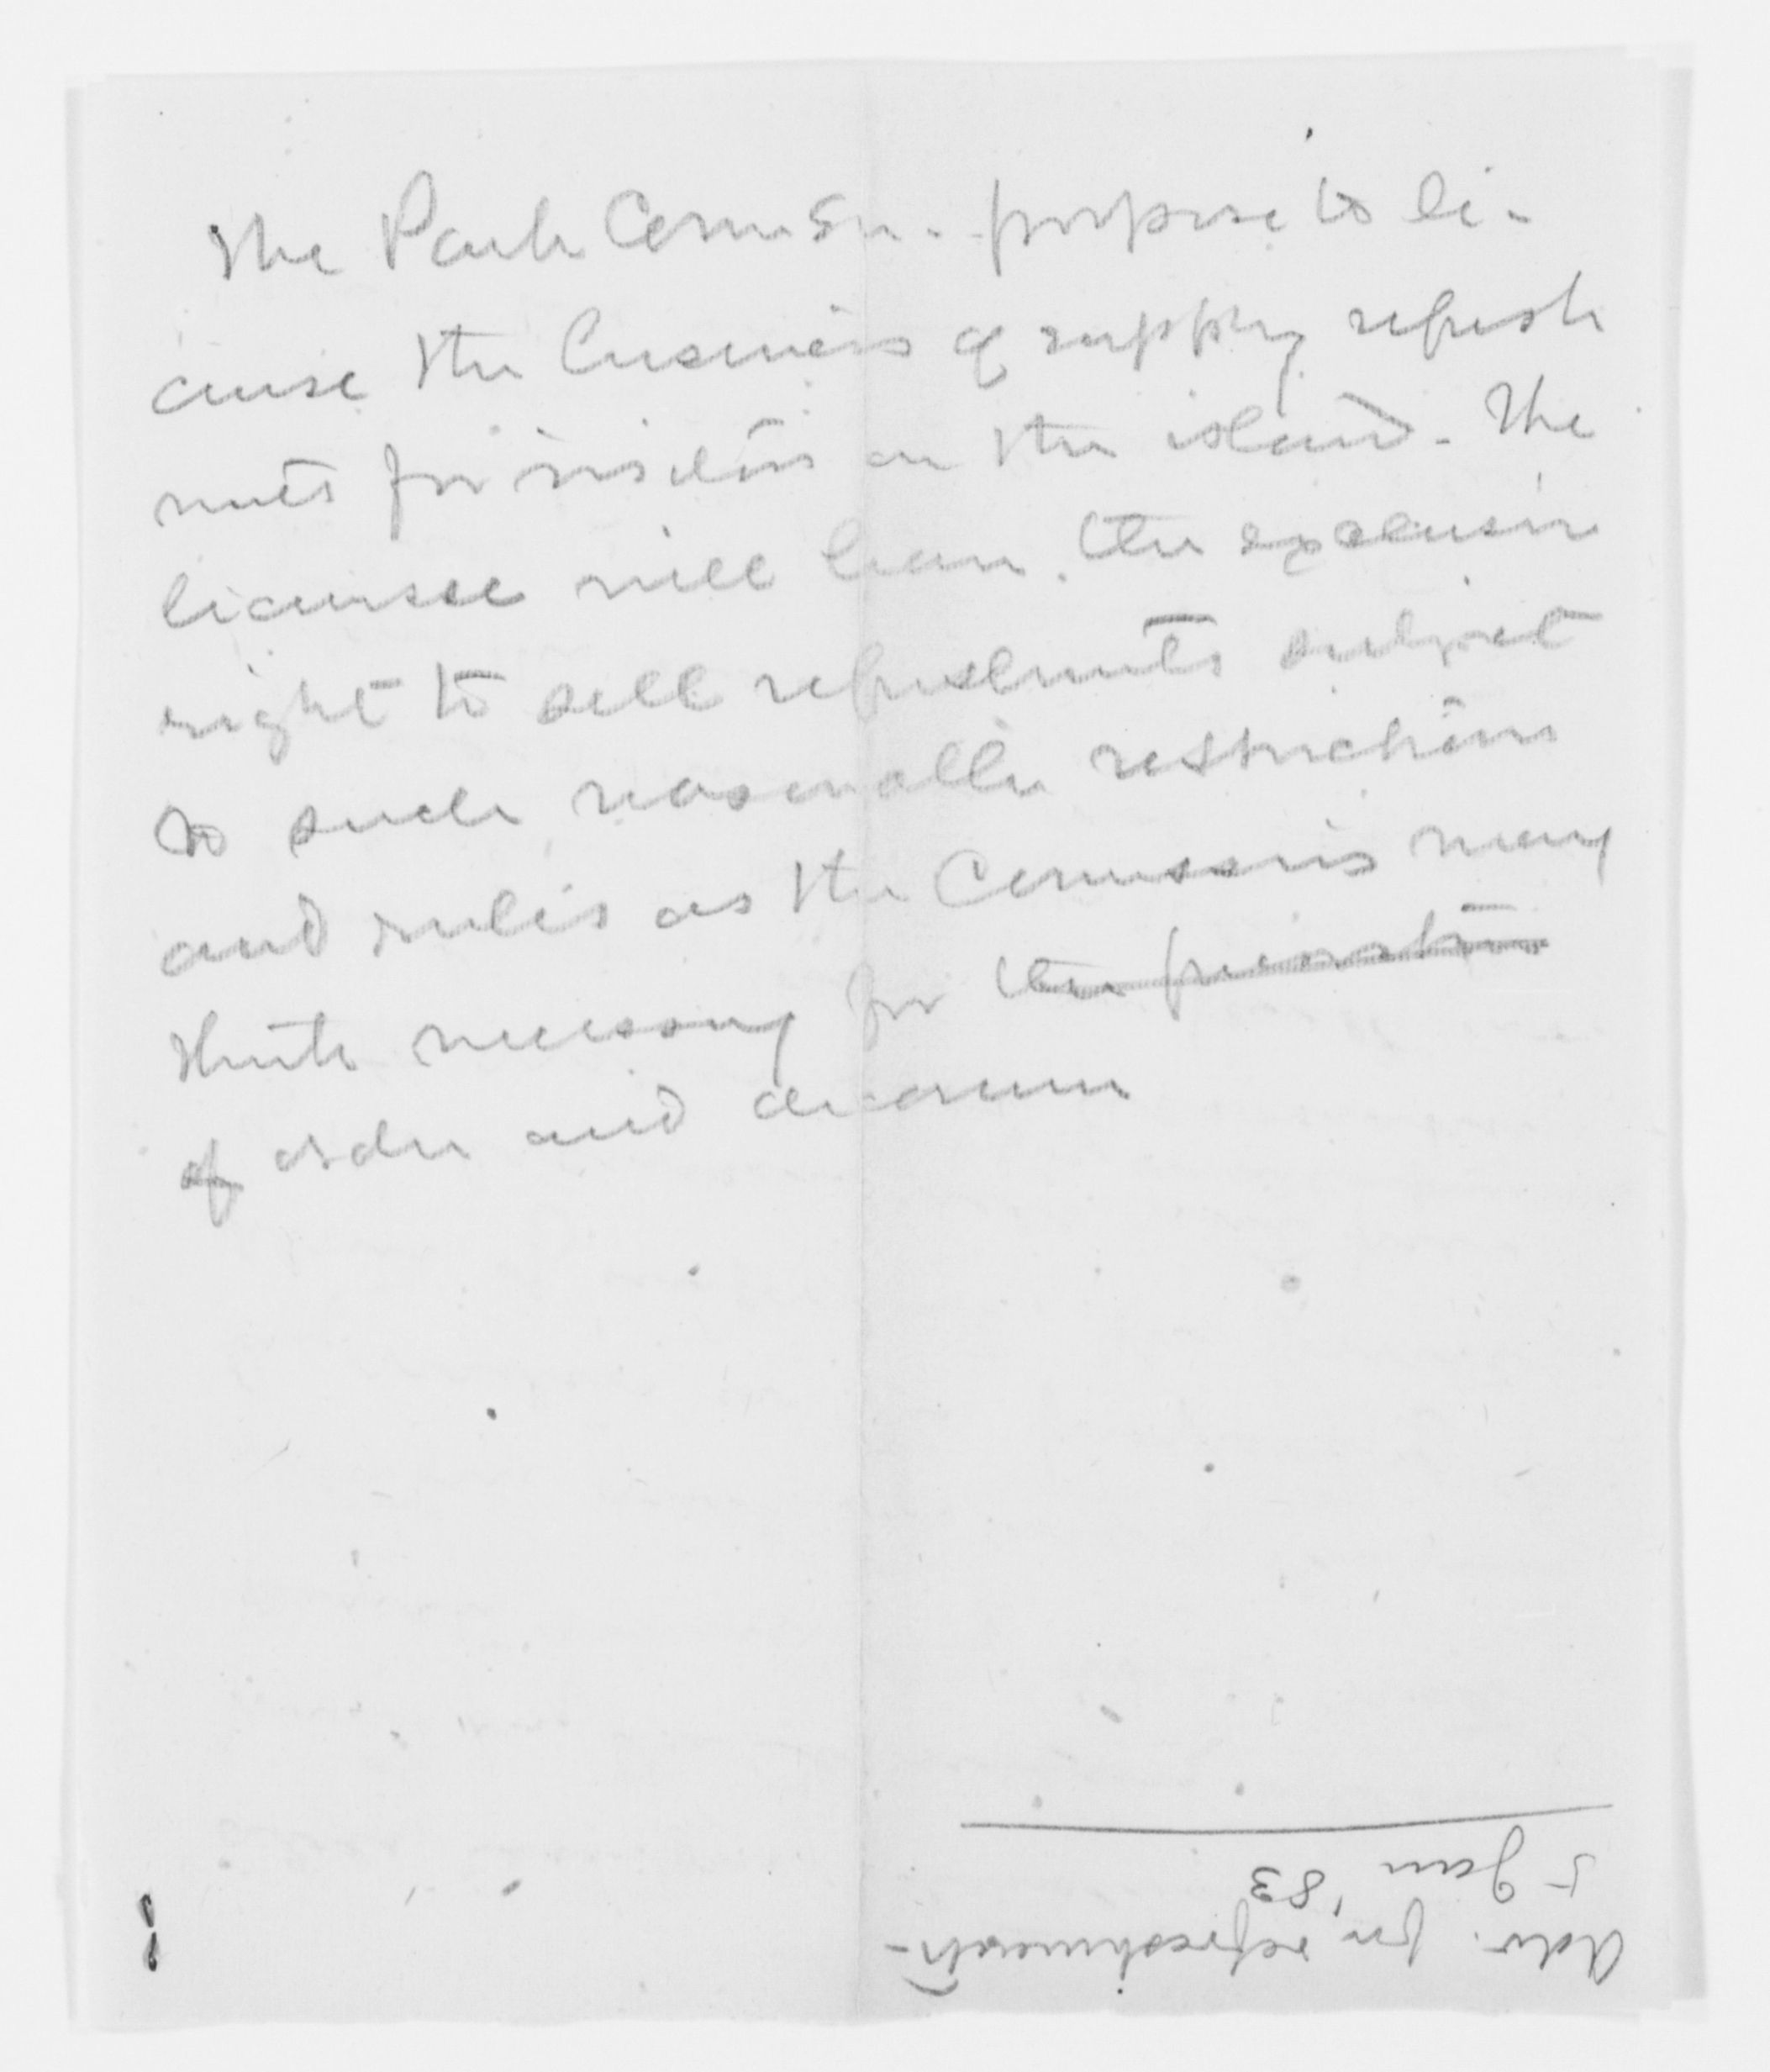 The Park Comrs. propose to li-
cense the business of supplyg refresh
ments for visitors on the island. The
licensee will have the exclusive
right to sell refreshments subject
to such reasonable restrictions
and rules as the Commissrs may
think necessary for the preservation
of order and decorum
Adv. for refreshments-
5 Jan '83